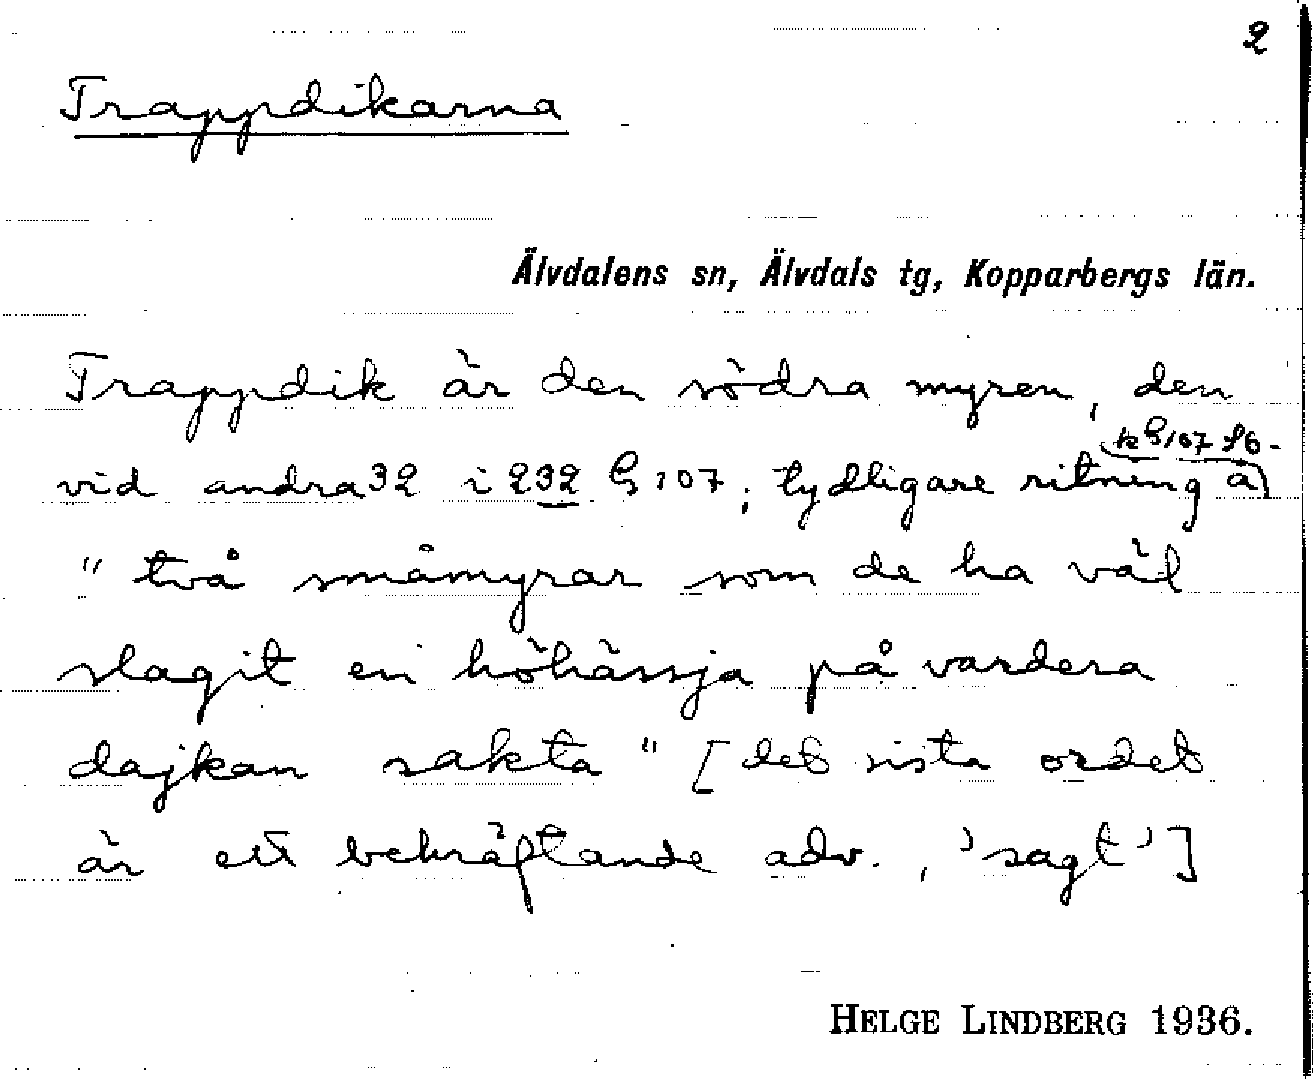 2
Trappdikarna
Älvdalens sn, Älvdals tg, Kopparbergs län.
Trappdik är den södra myren, den
vid andra 32 i 232 G 107; tydligare ritning å
"två småmyrar som de ha väl
slagit en höhässja på vardera
dajkan sakta" [det sista ordet
är ett bekräftande adv., 'sagt']
HELGE LINDBERG 1936.